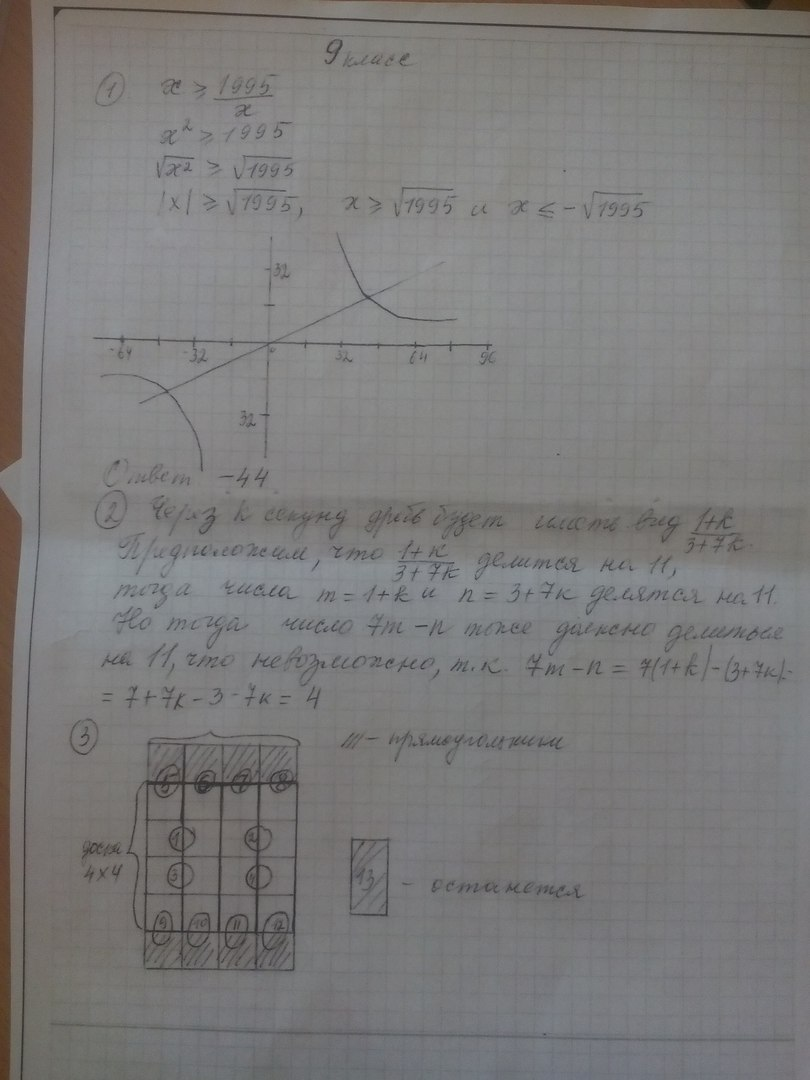 9 класс
① x ≥ 1995/x
x² ≥ 1995
√x² ≥ √1995
|x| ≥ √1995, x ≥ √1995 и x ≤ -√1995
32
-64 -32 0 32 64 96
32
Ответ -44
② Через k секунд дробь будет иметь вид (1+k)/(3+7k).
Предположим, что (1+k)/(3+7k) делится на 11,
тогда числа m = 1+k и n = 3+7k делятся на 11.
Но тогда число 7m-n тоже должно делиться
на 11, что невозможно, т.к. 7m-n = 7(1+k)-(3+7k)=
= 7+7k-3-7k = 4
③ m - прямоугольники
5 6 7 8
1 2
доска
4x4
3 4
13 - останется
9 10 11 12